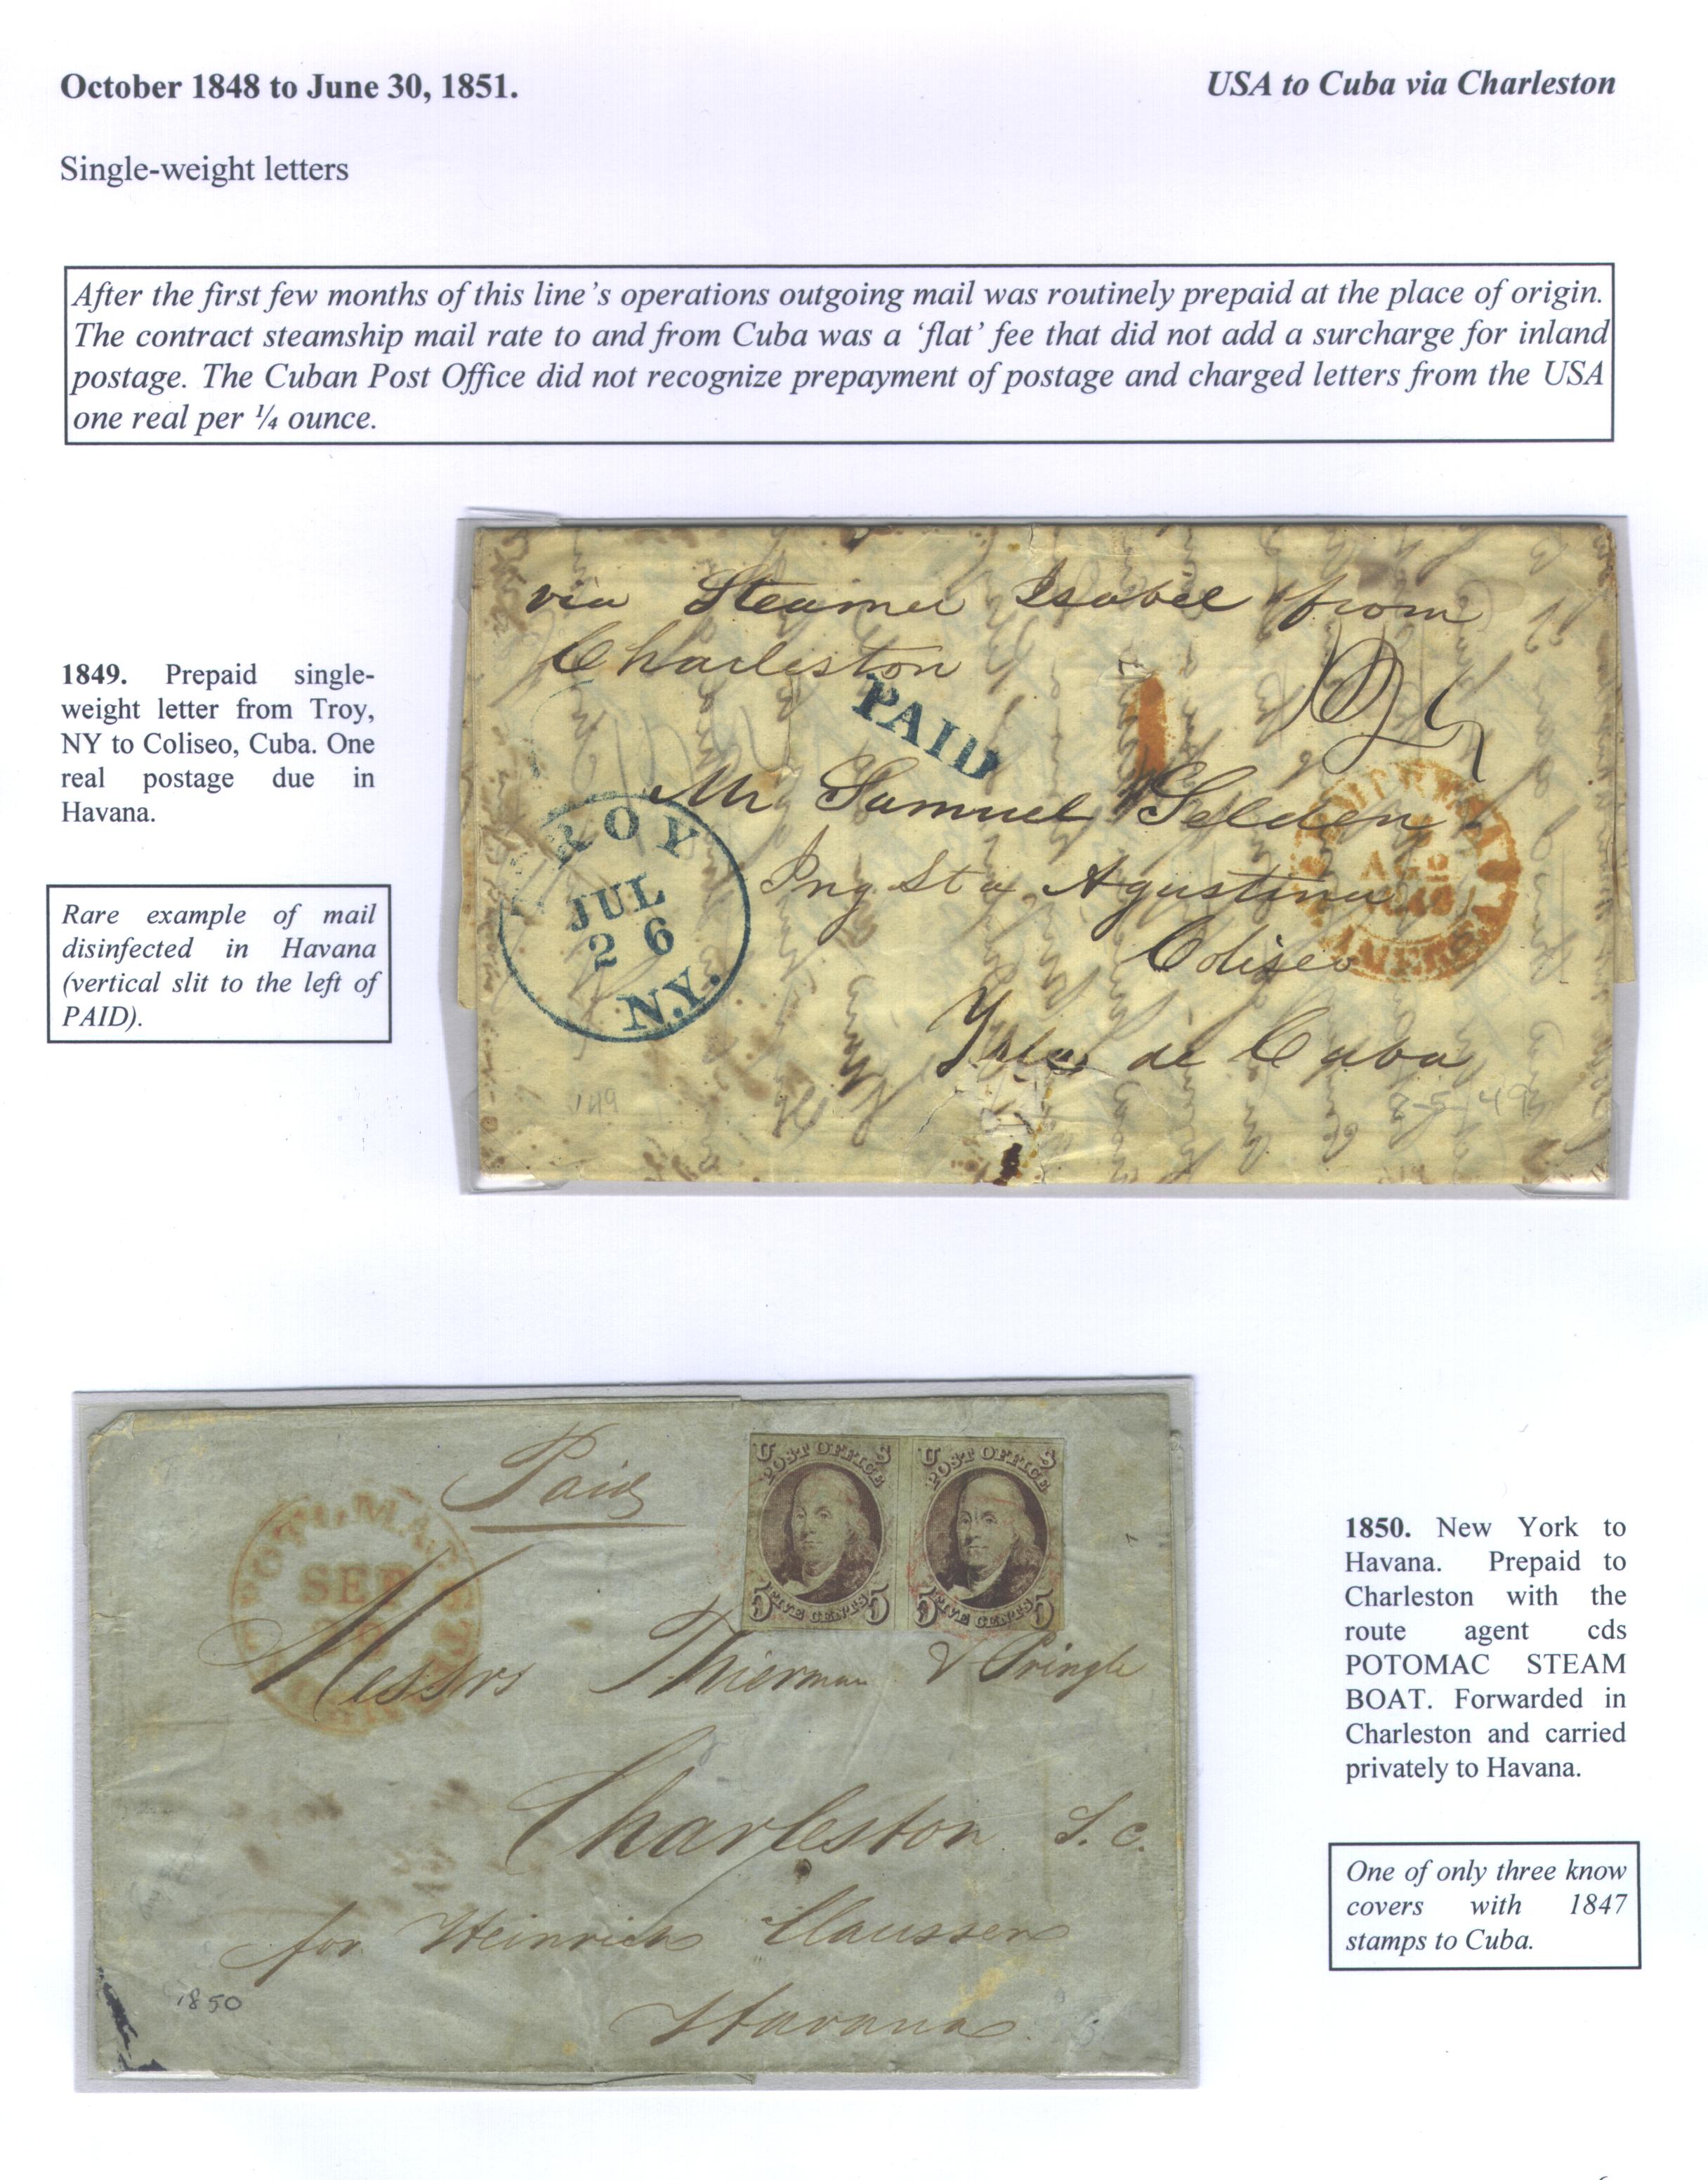 October 1848 to June 30, 1851.
USA to Cuba via Charleston
Single-weight letters
After the first few months of this line's operations outgoing mail was routinely prepaid at the place of origin.
The contract steamship mail rate to and from Cuba was a 'flat' fee that did not add a surcharge for inland
postage. The Cuban Post Office did not recognize prepayment of postage and charged letters from the USA
one real per ¼ ounce.
1849. Prepaid single-
weight letter from Troy,
NY to Coliseo, Cuba. One
real postage due in
Havana.
Rare example of mail
disinfected in Havana
(vertical slit to the left of
PAID).
via Steamer Isabel from
Charleston
PAID
Mr Samuel Selden
Ing Sta Agustina
Coliseo
Ysla de Cuba
TROY
JUL
26
N.Y.
149
8-5/49
Paid
U S
POST OFFICE
5 FIVE CENTS 5
U S
POST OFFICE
5 FIVE CENTS 5
POTOMAC
SEP
Messrs Thierman & Pringle
Charleston S.C.
for Heinrich Claussen
Havana
1850
1850. New York to
Havana. Prepaid to
Charleston with the
route agent cds
POTOMAC STEAM
BOAT. Forwarded in
Charleston and carried
privately to Havana.
One of only three know
covers with 1847
stamps to Cuba.